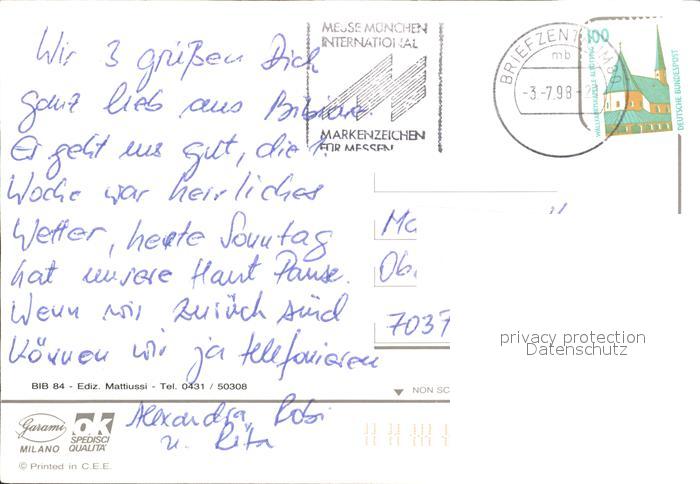 MESSE MÜNCHEN
INTERNATIONAL
MARKENZEICHEN
FÜR MESSEN
BRIEFZEN
mb
-3.-7.98-2
100
WALLFAHRTSKAPELLE ALTÖTTING
DEUTSCHE BUNDESPOST
Wir 3 grüßen Dich
ganz lieb aus Bibione.
Es geht uns gut, die 1.
Woche war herrliches
Wetter, heute Sonntag
hat unsere Haut Pause.
Wenn wir zurück sind
können wir ja telefonieren
Alexandra, Robi
u. Rita
Ma
Ob.
7037
privacy protection
Datenschutz
BIB 84 - Ediz. Mattiussi - Tel. 0431 / 50308
NON SC
Garami
MILANO
ok
SPEDISCI
QUALITA'
© Printed in C.E.E.